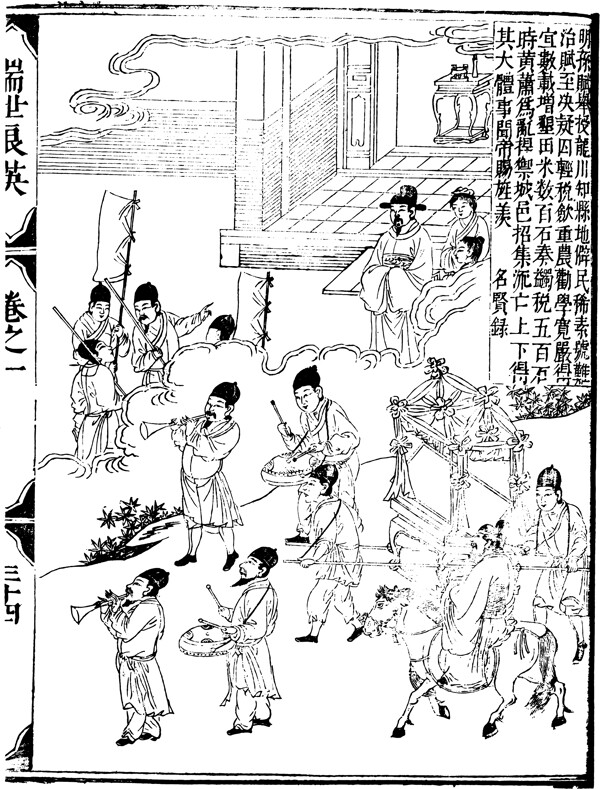 明孫舉授龍川知縣地僻民稀素號難
治賦至决疑囚輕稅歛重農勸學寬嚴得
宜數載增墾田米数百石奏蠲税五百石
時黄蕭爲亂捍禦城邑招集流亡上下得
其大體事聞帝賜旌美 名賢録
瑞世良英
卷之一
三十四